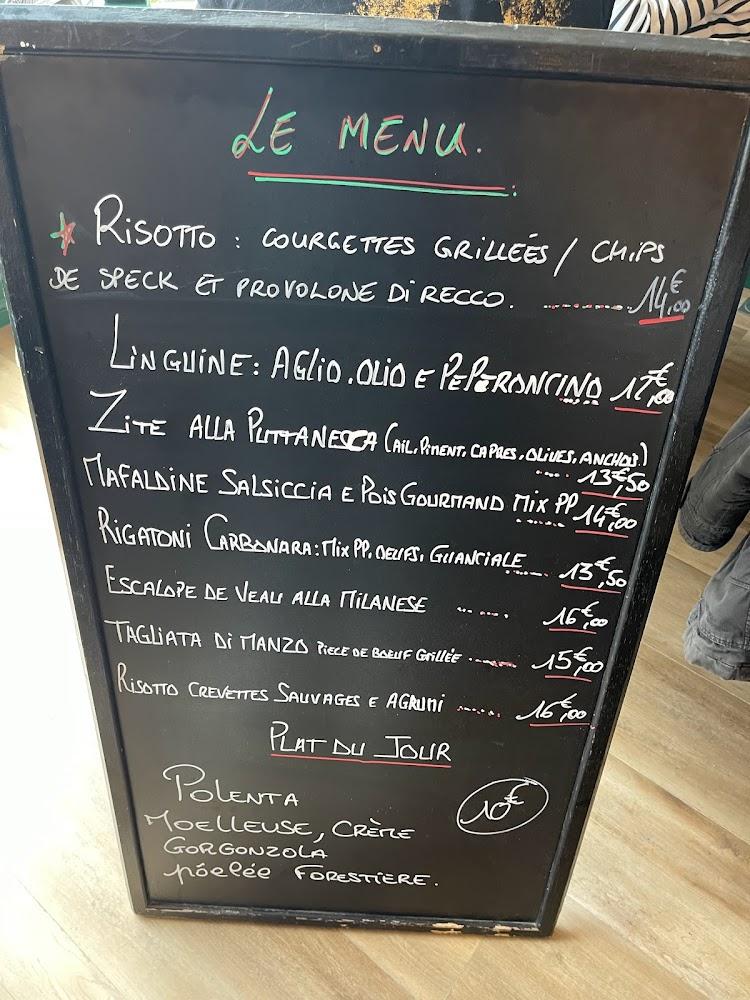 LE MENU.
RISOTTO : COURGETTES GRILLEÉS / CHIPS
DE SPECK ET PROVOLONE DI RECCO. ......... 14,00€
LINGUINE : AGLIO, OLIO E PEPERONCINO ..... 12,00€
ZITE ALLA PUTTANESCA (AIL, PIMENT, CAPRES, OLIVES, ANCHOIS)
.... 13,50€
MAFALDINE SALSICCIA E POIS GOURMAND MIX PP ..... 14,00€
RIGATONI CARBONARA : MIX PP, OEUFS, GUANCIALE ..... 13,50€
ESCALOPE DE VEAU ALLA MILANESE ...... 16,00€
TAGLIATA DI MANZO PIECE DE BOEUF GRILLÉE ...... 15,00€
RISOTTO CREVETTES SAUVAGES E AGRUMI ...... 16,00€
PLAT DU JOUR
POLENTA
MOELLEUSE, CRÈME
GORGONZOLA
póelée FORESTIERE.
10€